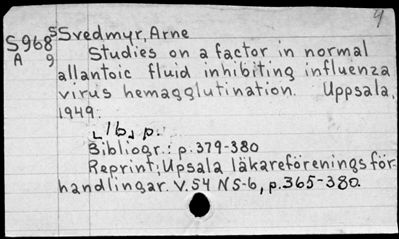 4
S968 S Svedmyr, Arne
A 9 Studies on a factor in normal
allantoic fluid inhibiting influenza
virus hemagglutination. Uppsala,
1949.
[16] p.
Bibliogr.: p.379-380
Reprint: Upsala läkareförenings för-
handlingar. V.54 N5-6, p.365-380.